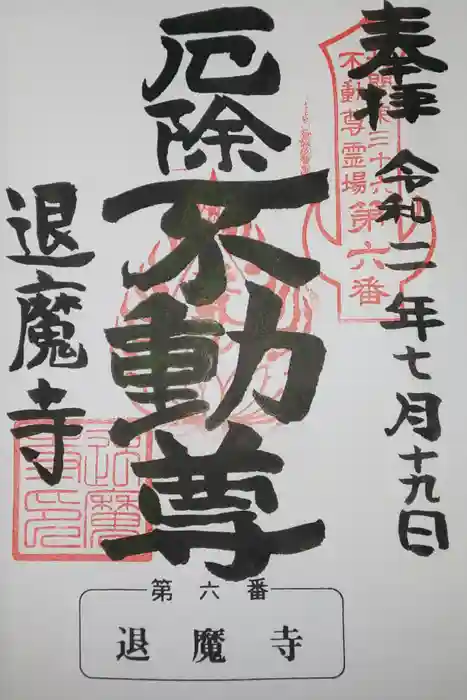 奉拝 令和二年七月十九日
不動尊霊場第六番
厄除
不動尊
退魔寺
第六番
退魔寺